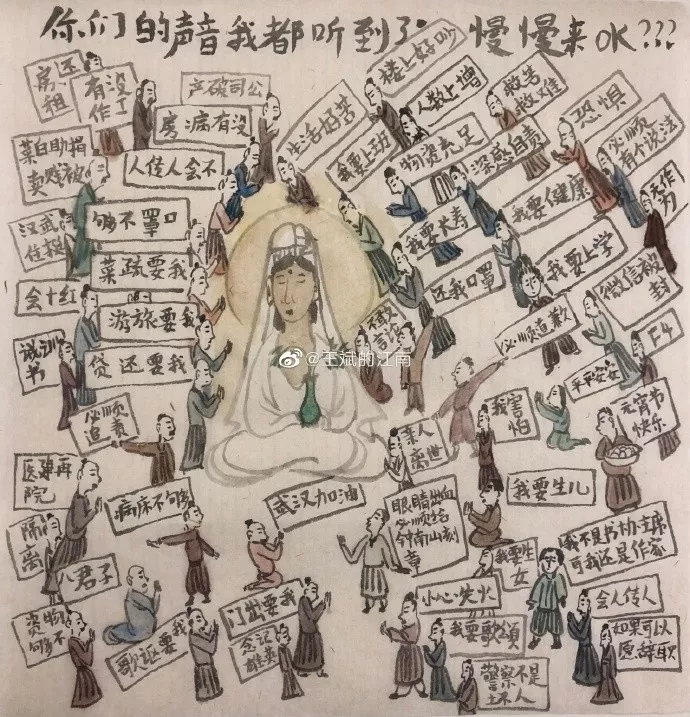 你们的声音我都听到了 慢慢来OK???
还
房租
有没
作工
产破司公
楼上好吵
人数上增
救苦
救难
恐惧
必须
有个说法
房病有没
生活好苦
我要上班
物资充足
深感自责
菜白助捐
卖贱被
人传人会不
我要健康
我要长寿
汉武
住挺
够不罩口
菜疏要我
还我口罩
我要上学
微信被
封
会十红
游旅要我
诫训
书
贷还要我
必须道歉
F4
平平安安
元宵节
快乐
必须
追责
我害
怕
亲人
离世
医建再
院
病床不够
武汉加油
我要生儿
隔
离
眼睛出血
必须给
钟南山刻
章
我不是书协主席
可我还是作家
我要生
女
八君子
小心失火
会人传人
门出要我
资物
够不
歌讴要我
我要歌颂
如果可以
愿辞职
警察不是
坏人
@王斌的江南